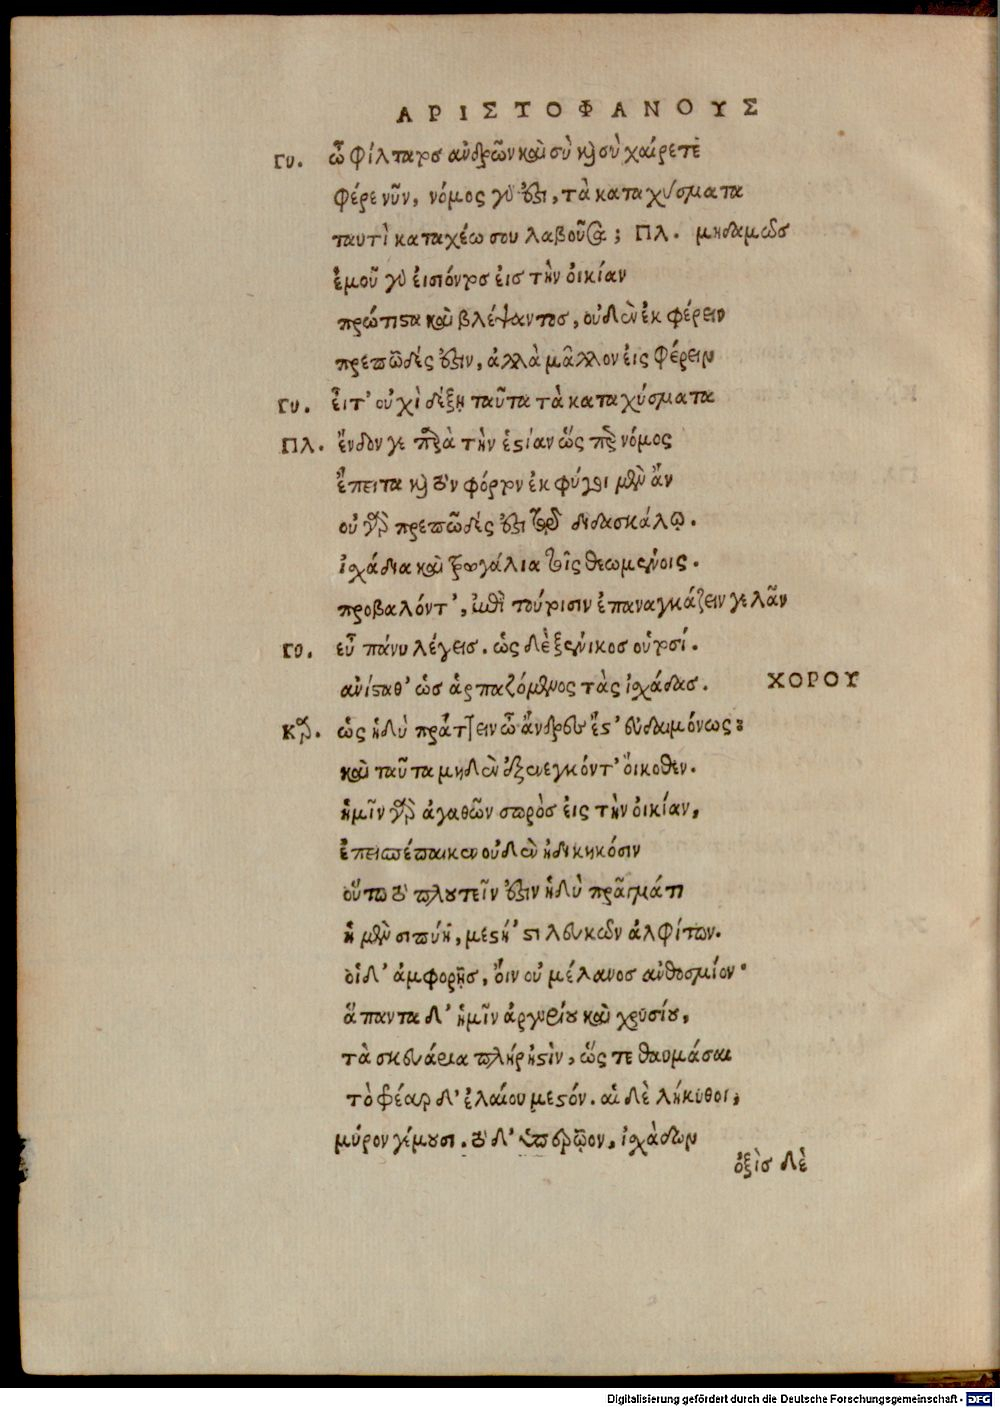 ΑΡΙΣΤΟΦΑΝΟΥΣ
Γυ. ὦ φίλτατε ἀνδρῶν καὶ σὺ καὶ σὺ χαίρετε
φέρε νῦν, νόμος γάρ ἐστι, τὰ καταχύσματα
ταυτὶ καταχέω σου λαβοῦσα; Πλ. μηδαμῶσ
ἐμοῦ γὰρ εἰσιόντοσ εἰσ τὴν οἰκίαν
πρώτιστα καὶ βλέψαντοσ, οὐδὲν ἐκφέρειν
πρεπῶδές ἐστιν, ἀλλὰ μᾶλλον εἰς φέρειν
Γυ. εἶτ' οὐχὶ δέξῃ ταῦτα τὰ καταχύσματα
Πλ. ἔνδον γε παρὰ τὴν ἑστίαν ὥς περ νόμος
ἔπειτα καὶ τὸν φόρτον ἐκφύγοιμεν ἄν
οὐ γὰρ πρεπῶδές ἐστι τῷ διδασκάλῳ.
ἰχάδια καὶ τρωγάλια τοῖς θεωμένοις.
προβαλόντ', ἐπὶ τούτοισιν ἐπαναγκάζειν γελᾶν
Γυ. εὖ πάνυ λέγεισ. ὡς δὲ ξένικοσ οὑτοσί.
ἀνίσταθ' ὡσ ἁρπαζόμενος τὰς ἰχάδασ. ΧΟΡΟΥ
Καρ. ὡς ἡδὺ πράττειν ὦ ἄνδρες ἔστ' εὐδαιμόνως:
καὶ ταῦτα μηδὲν ἐξενεγκόντ' οἴκοθεν.
ἡμῖν γὰρ ἀγαθῶν σωρὸσ εἰς τὴν οἰκίαν,
ἐπεισπέπαικεν οὐδὲν ἠδικηκόσιν
οὕτω τὸ πλουτεῖν ἐστιν ἡδὺ πρᾶγμά τι
ἡ μὲν σιπύη, μεστή' στι λευκῶν ἀλφίτων.
οἱ δ' ἀμφορῆσ, οἴνου μέλανοσ ἀνθοσμίου·
ἅπαντα δ' ἡμῖν ἀργυρίου καὶ χρυσίου,
τὰ σκευάρια πλήρη'στὶν, ὥς τε θαυμάσαι
τὸ φέαρ δ' ἐλαίου μεστόν. αἱ δὲ λήκυθοι,
μύρον γέμουσι. τὸ δ' ὑπερῷον, ἰχάδων
ὀξὶσ δὲ
Digitalisierung gefördert durch die Deutsche Forschungsgemeinschaft - DFG